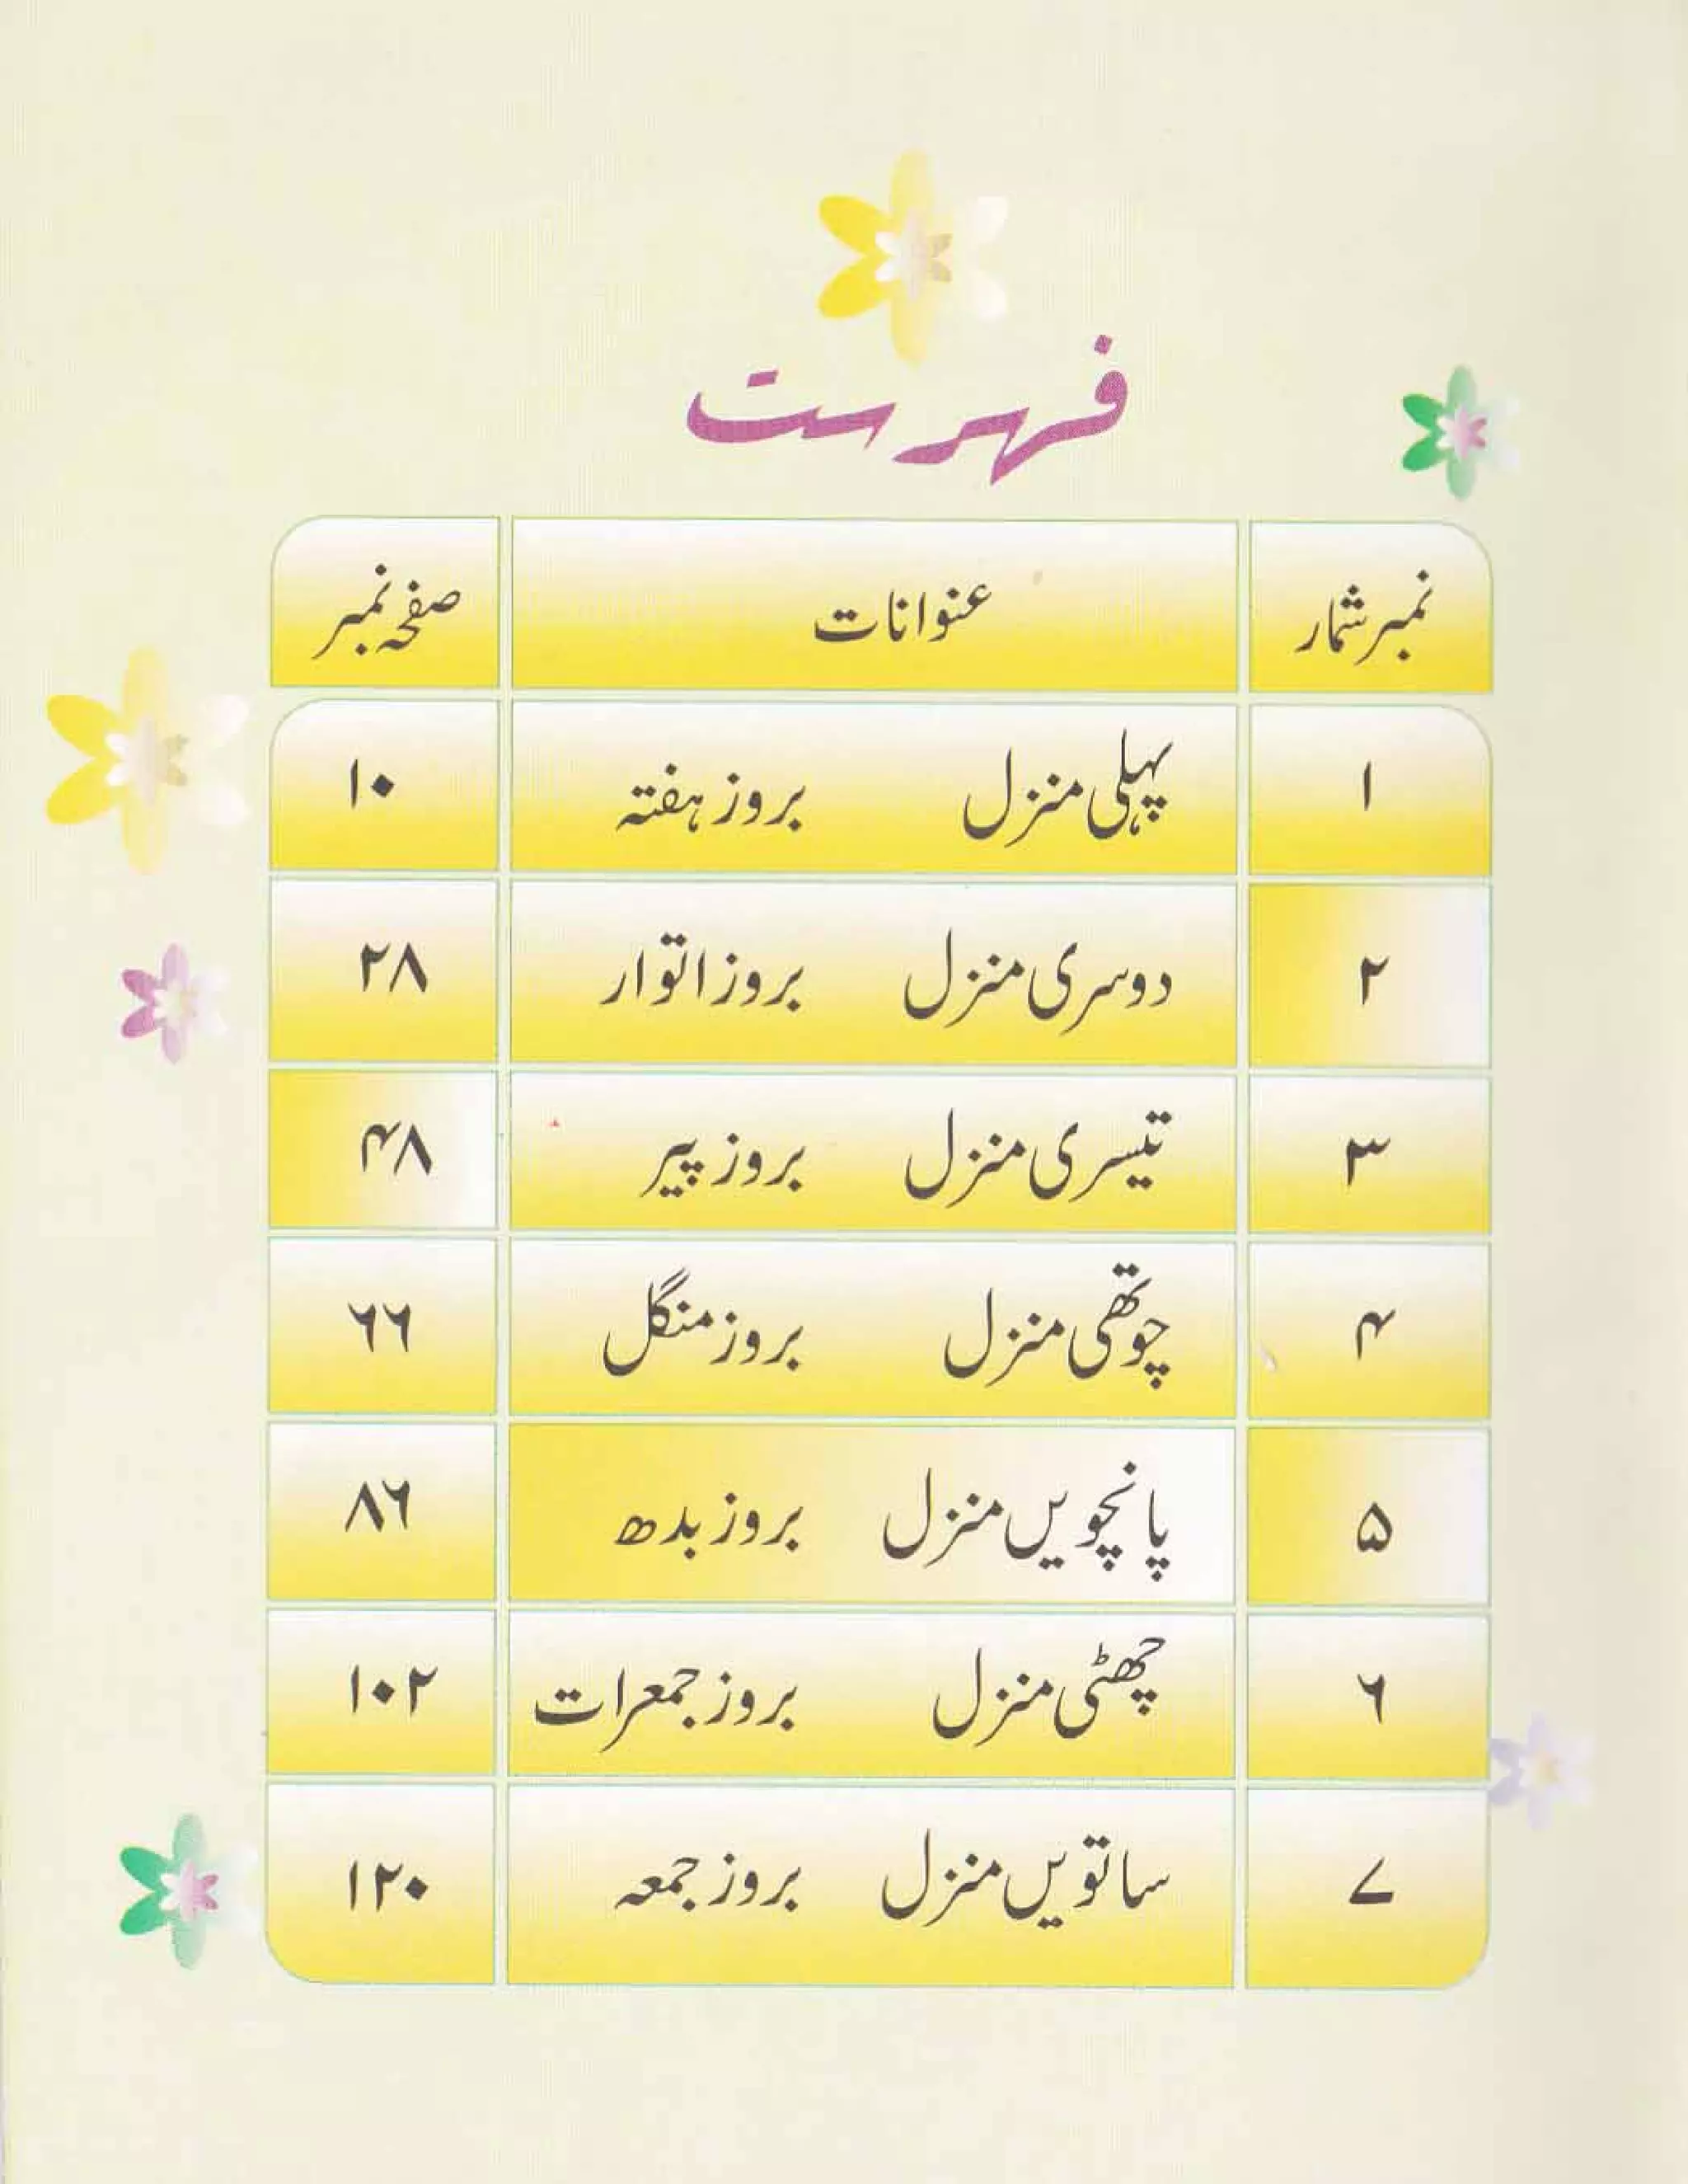 فہرست
نمبر شمار عنوانات صفحہ نمبر
۱ پہلی منزل بروز ہفتہ ۱۰
۲ دوسری منزل بروز اتوار ۲۸
۳ تیسری منزل بروز پیر ۴۸
۴ چوتھی منزل بروز منگل ۶۶
۵ پانچویں منزل بروز بدھ ۸۶
۶ چھٹی منزل بروز جمعرات ۱۰۲
۷ ساتویں منزل بروز جمعہ ۱۲۰